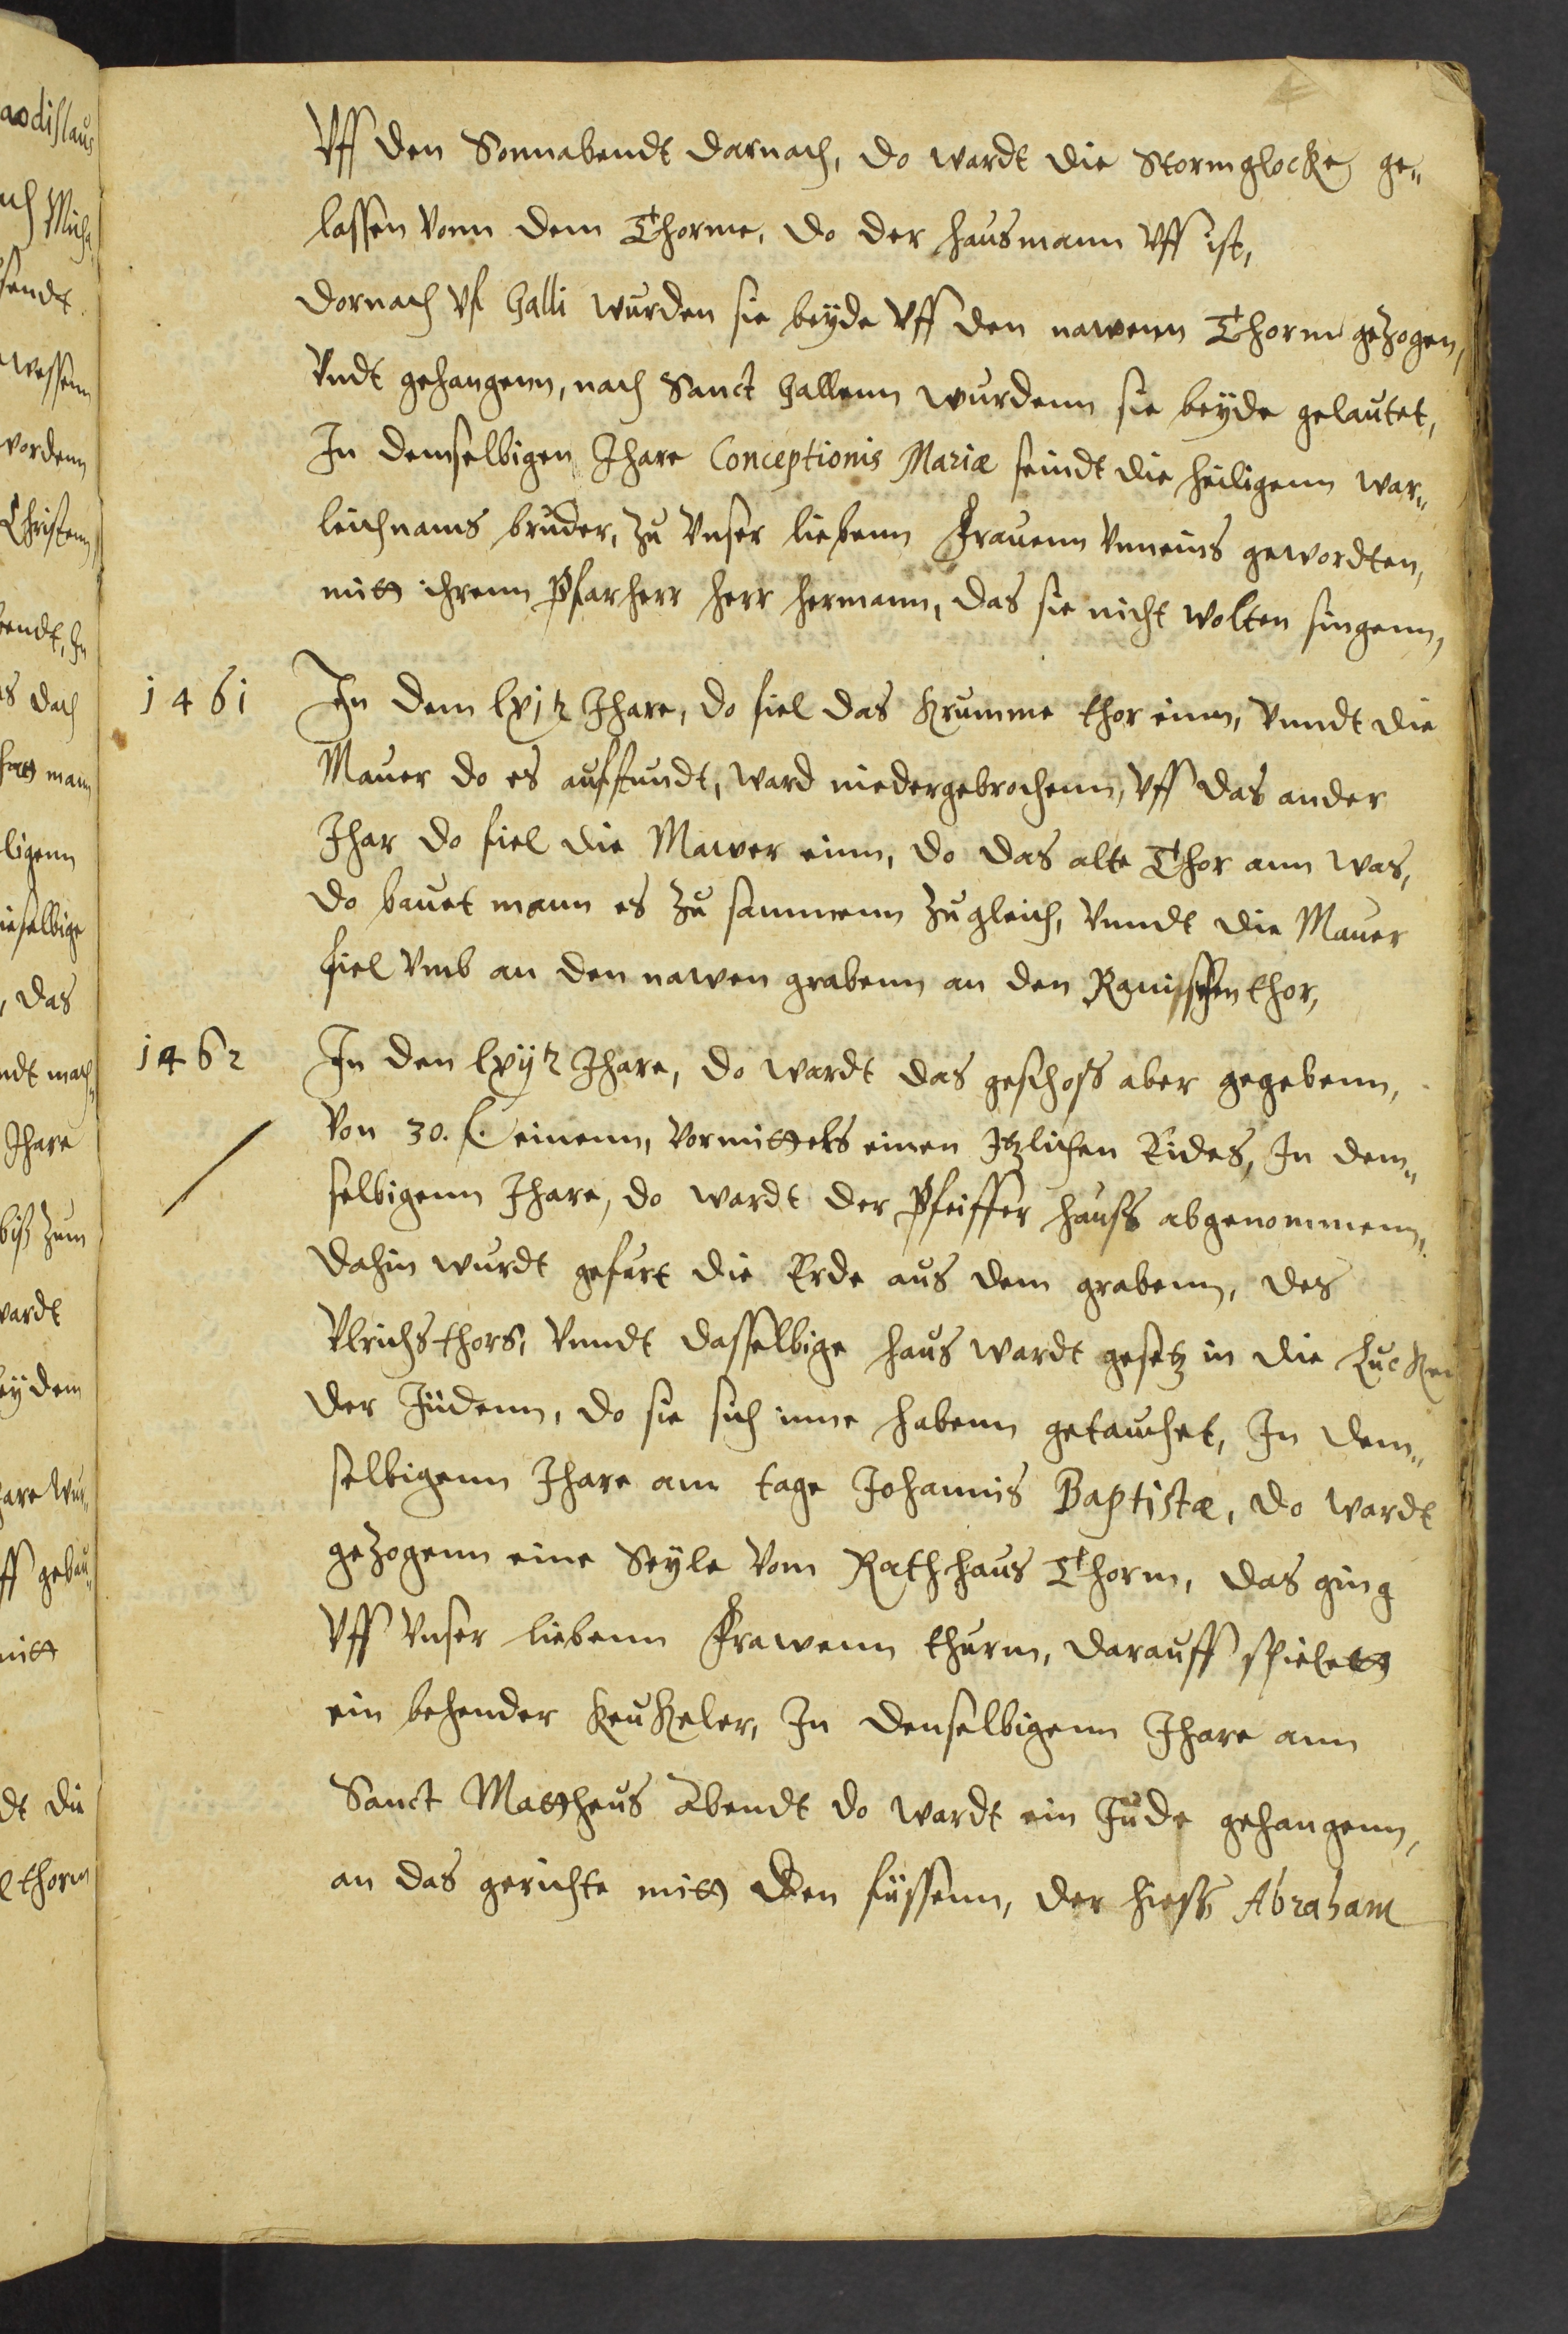 Vff den Sonnabendt darnach, do wardt die Stormglocke ge„
lassen vonn dem Thorme, do der hausmann vff ist,
dornach vf Galli wurden sie beyde vff den nawenn Thorm gezogen,
vndt gehangenn, nach Sanct Gallenn wurdenn sie beyde gelautet,
In demselbigen Jhare Conceptionis Mariæ seindt die heiligenn war„
leichnams bruder, zu vnser liebenn Frauenn vneins gewordten,
mitt ihrenn Pfarherr herr hermann, das sie nicht wolten singenn,
1461 In dem lxj tz Jhare, do fiel das Krumme thor einn, vnndt die
Mauer do es auffstundt, ward niedergebrochenn, vff das ander
Jhar do fiel die Mawer einn, do das alte Thor ann was,
do bauet mann es zu sammenn zu gleich, vnndt die Mauer
fiel vmb an den nawen grabenn an den Ranischen thor,
1462 In den lxij tz Jhare, do wardt das geschoss aber gegebenn,
von 30. ß. einenn, vormittels einen Itzlichen Eides, In dem„
selbigenn Jhare, do wardt der Pfeiffer hauss abgenommenn,
dahin wurdt gefurt die Erde aus dem grabenn, des
Vlrichsthors, vnndt dasselbige haus wardt gesetz in die Lucken
der Jüdenn, do sie sich inne habenn getauchet, In dem„
selbigenn Jhare am tage Johannis Baptistæ, do wardt
gezogenn eine Seyle vom Rathhaus Thorm, das ging
vff vnser liebenn Frawenn thurm, darauff spielett
ein behender keukeler, In denselbigenn Jhare ann
Sanct Mattheus Abendt do wardt ein Jude gehangenn,
an das gerichte mitt den füssenn, der hiess Abraham